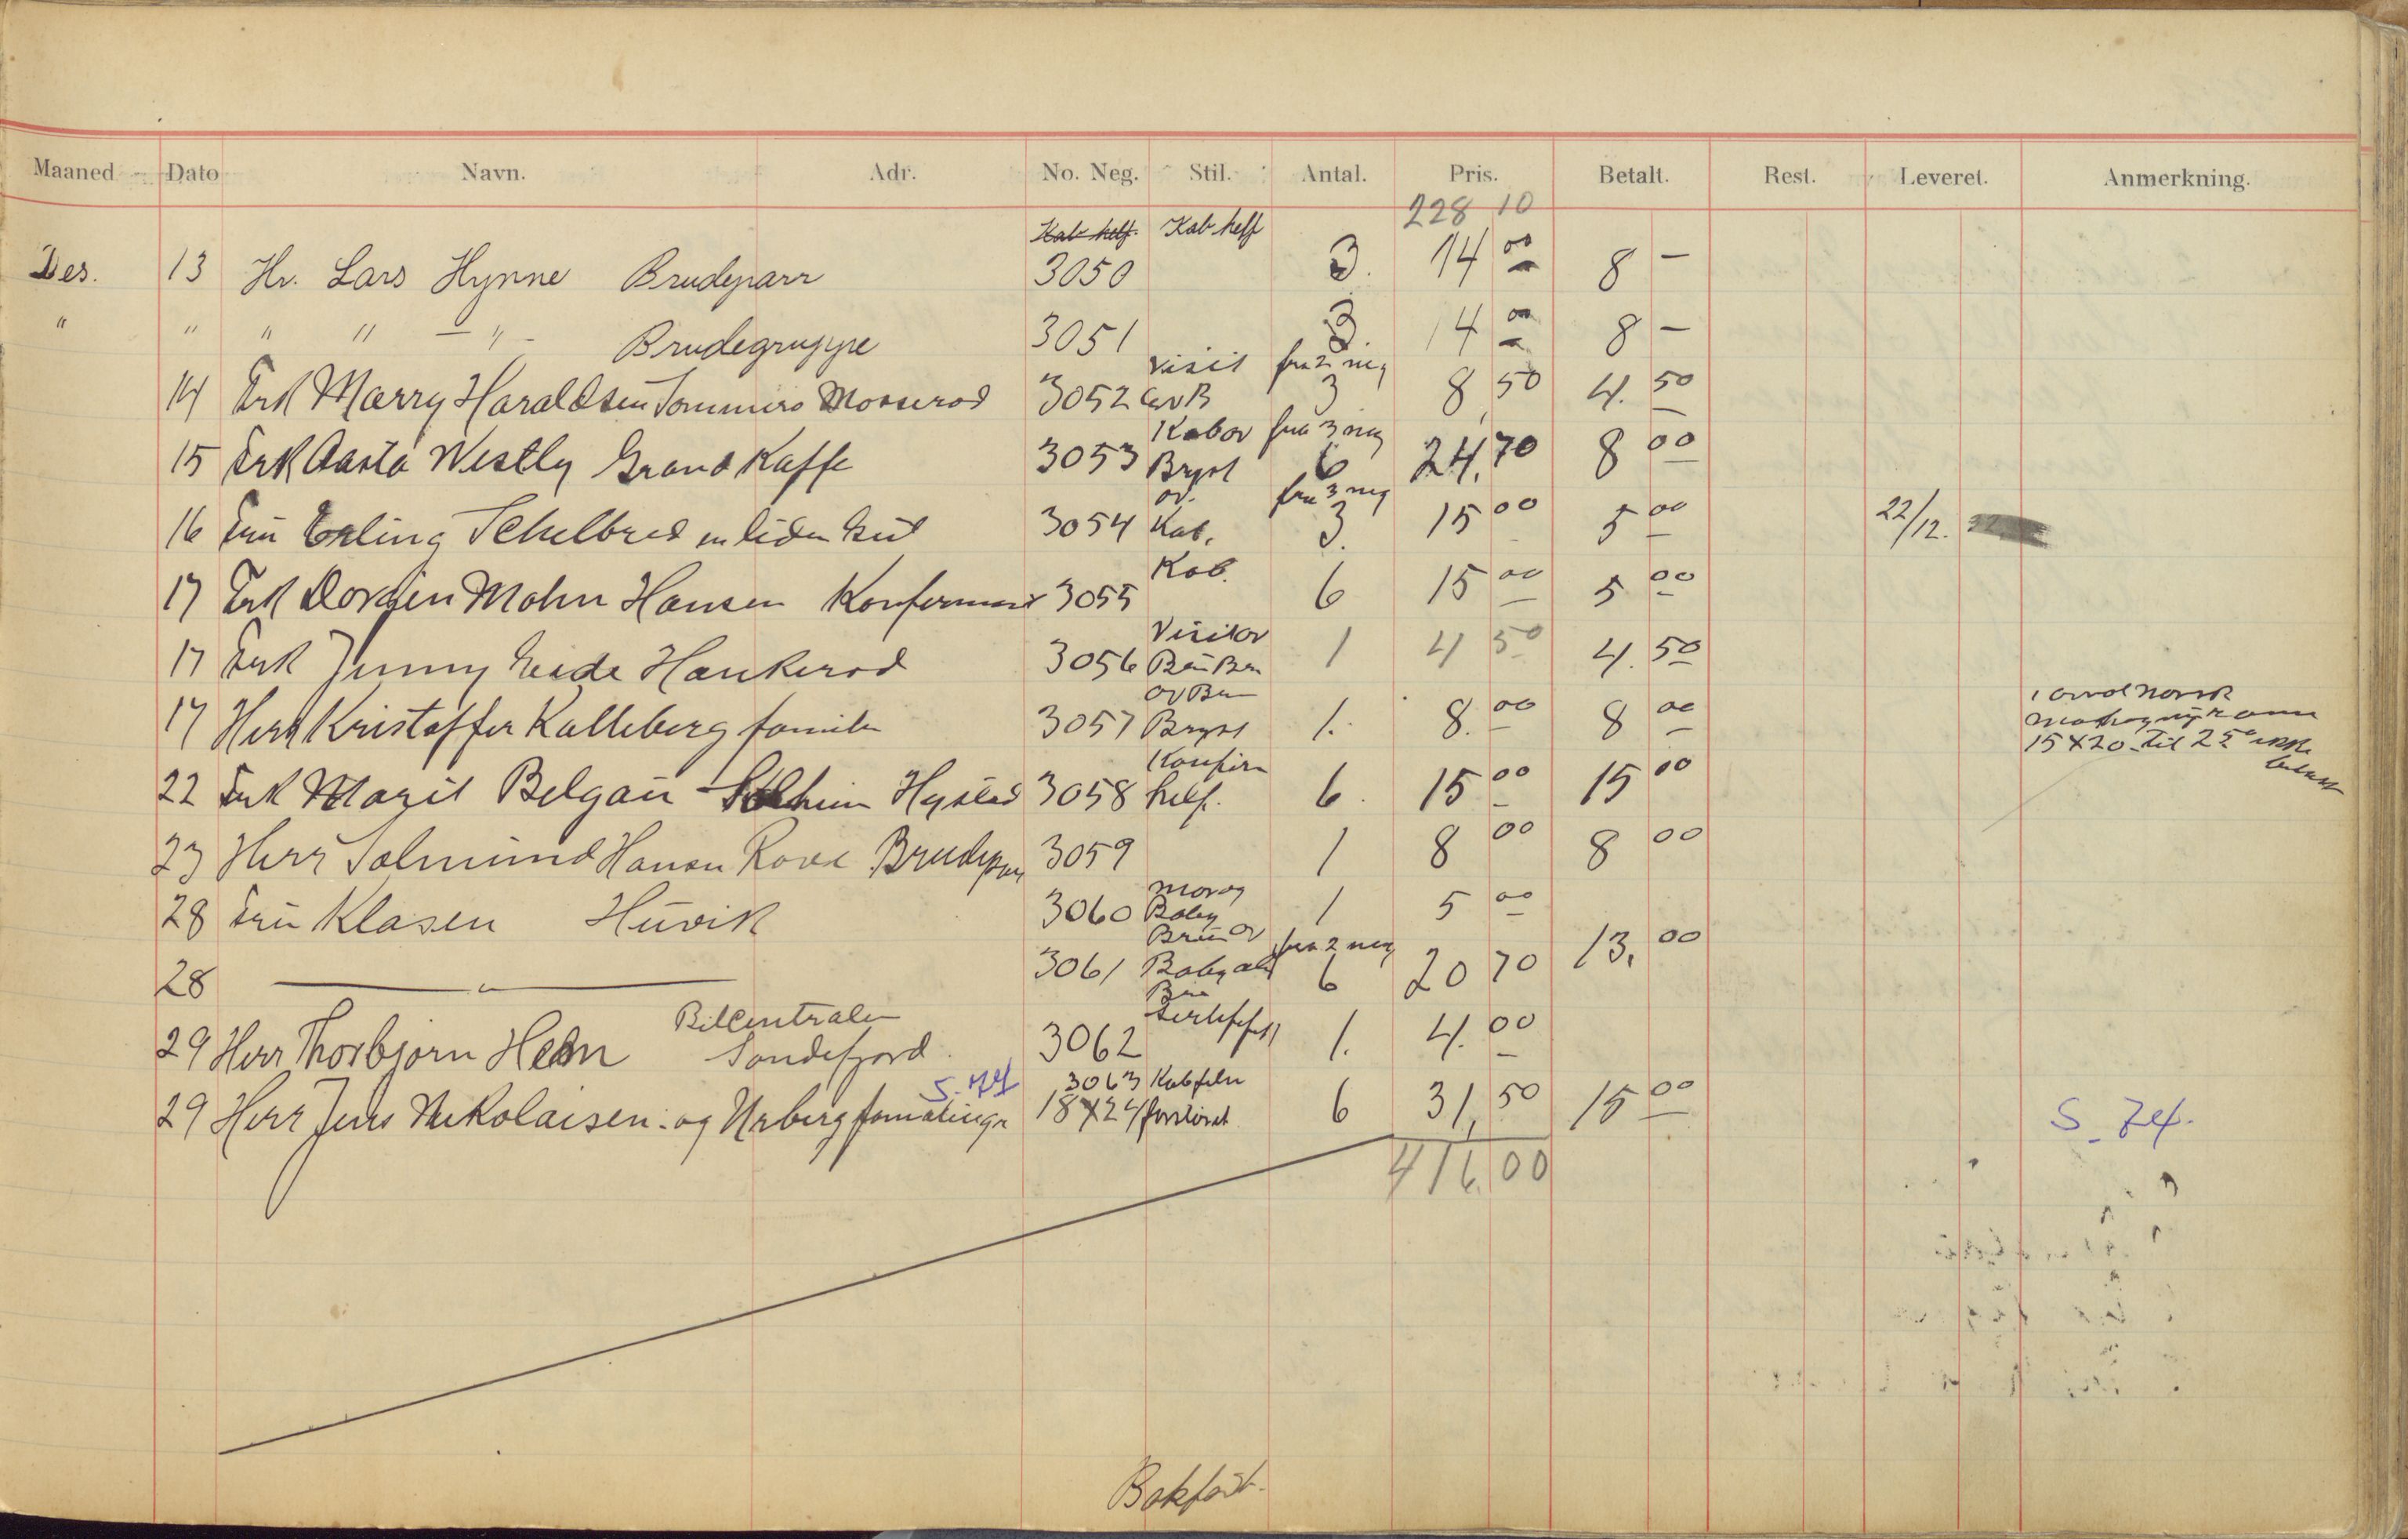 Maaned Dato Navn. Adr. No. Neg. Stil. Antal. Pris. Betalt. Rest. Leveret. Anmerkning.
228 10
Kab helf. Kab helf
Des. 13 Hr. Lars Hynne Brudeparr 3050 3. 14 00 8 —
" " " " — " — Brudegruppe 3051 3 14 00 8 —
visit fra 2 neg
14 Frk Marry Haraldsen Mosserod 3052 3 8,50 4.50
Kab av fra 3 neg
15 Frk Aasta Westly Grand Kaffe 3053 Bryst 6 24,70 8 00
av. fra 3 neg
16 Fru Erling Schelbred en liden Gut 3054 Kab. 3. 15 00 5 00 22/12.
Kab.
17 Frk Mohn Hansen Konfermant 3055 6 15 00 5 00
Visit av
17 Frk Jenny Eeide Haukerod 3056 1 4 50 4.50
17 Herr Kristoffer Kalleberg familie 3057 Bryst 1. 8.00 8 00
15 x 20 Til 25
Konfirm
22 Frk Marit Belgau Hystad 3058 helf. 6. 15 00 15 00
23 Herr Salmund Hansen Rove Brudepar 3059 1 8 00 8 00
mor og
28 Fru Klasen Huvik 3060 Baby 1 5 00
fra 2 neg
28 — " — 3061 Baby 6 20 70 13,00
Bilcentralen
29 Herr Thorbjørn Hem Sandefjord. 3062 1. 4.00
S. 74 3063 Kab
29 Herr Jens Nikolaisen. og Urberg 18 x 24 6 31,50 15 00 S. 74.
416,00
Bokført.